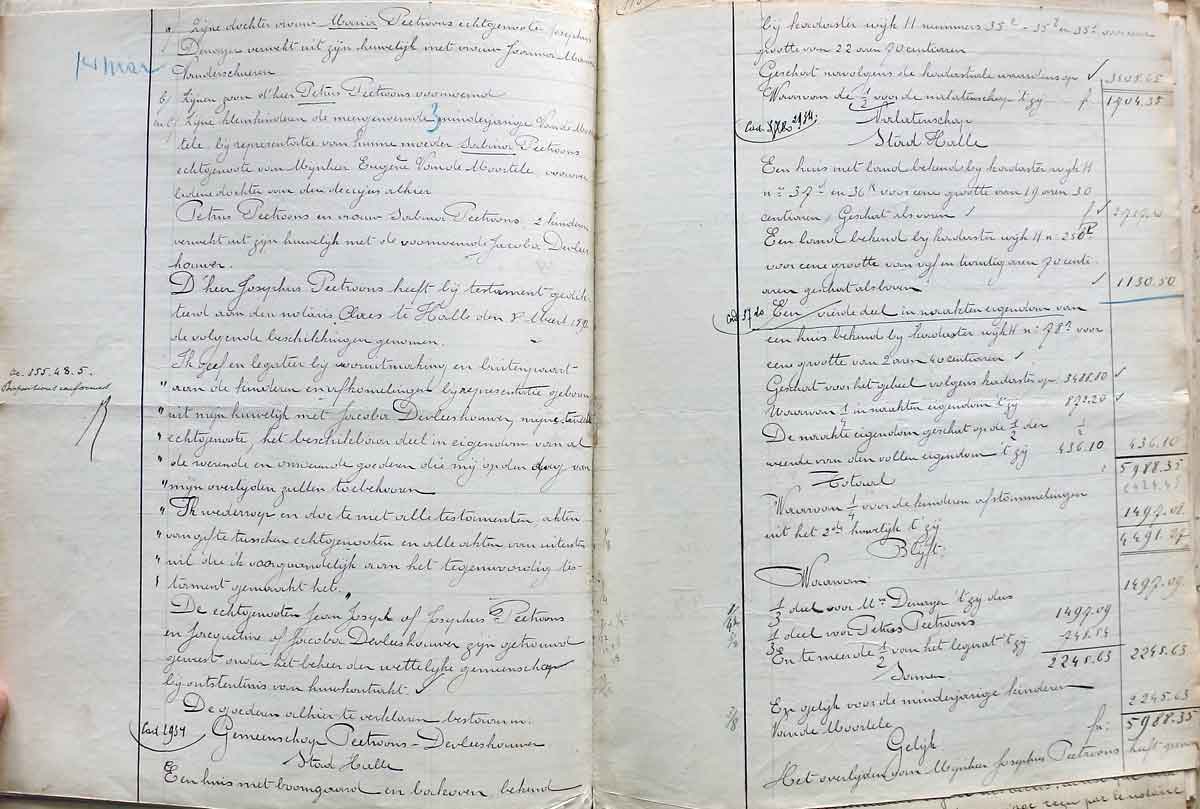 a) Zijne dochter vrouw Maria Peetroons echtgenoote Josephus
Demayer verwekt uit zijn huwelijk met vrouw Joanna Maria
Vanderschueren
b) Zijnen zoon d'heer Petrus Peetroons voornoemd
en c) Zijne kleinkinderen de meergenoemde 3 minderjarige Van de Moor
tele bij representatie van hunne moeder Sabina Peetroons
echtgenoote van Mijnheer Eugène Van de Moortele, vooraf
ledene dochter van den decujus alhier
Petrus Peetroons en vrouw Sabina Peetroons, 2 kinderen
verwekt uit zijn huwelijk met de voornoemde Jacoba Devlees
houwer.
D'heer Josephus Peetroons heeft bij testament gedik
teerd aan den notaris Claes te Halle den 8 Maart
de volgende beschikkingen genomen.
ac. 155.48.5.
Ik geef en legateer bij vooruitmaking en buitenpaart
" aan de kinderen en afkomelingen bij representatie geboren
" uit mijn huwelijk met Jacoba Devleeshouwer, mijne tweede
" echtgenoote, het beschikbaar deel in eigendom van al
" de roerende en onroerende goederen die mij op den dag van
" mijn overlijden zullen toebehooren
" Ik wederroep en doe te niet alle testamenten, akten
" van gifte tusschen echtgenooten en alle akten van uitersten
" wil die ik voorgaandelijk aan het tegenwoordig tes-
" tament gemaakt heb."
De echtgenooten Jean Joseph of Josephus Peetroons
en Jacqueline of Jacoba Devleeshouwer zijn getrouwd
geweest onder het beheer der wettelijke gemeenschap
bij ontstentenis van huwkontrakt.
De goederen alhier te verklaren bestaan in:
Cad. 2934
Gemeenschap Peetroons-Devleeshouwer
Stad Halle
Een huis met boomgaard en bakoven, bekend
bij kadaster wijk H nummers 35
grootte van 22 aren 70 centiaren
Geschat navolgens de kadastrale waarde op 3808.65
Waarvan de 1/2 voor de nalatenschap 't zij f 1904.35
Cad. 3780 2934.
Nalatenschap
Stad Halle
Een huis met land bekend bij kadaster wijk H
n° 37 en 36 voor eene grootte van 19 aren 30
centiaren, Geschat als voren f
Een land bekend bij kadaster wijk H n° 250
voor eene grootte van vijf en twintig aren 70 centi
aren geschat als voren 1130.50
Cad. 3720
Een vierde deel in naakten eigendom van
een huis bekend bij kadaster wijk H n° 78 voor
eene grootte van 2 aren 40 centiaren
Geschat voor het geheel volgens kadaster op 3488.80
Waarvan 1/4 in naakten eigendom 't zij 872.20
De naakte eigendom geschat op de 1/2 der
waarde van den vollen eigendom 't zij 436.10 436.10
Totaal 5988.35
Waarvan 1/4 voor de kinderen afstammelingen
uit het 2de huwelijk 't zij 1497.08
Blijft: 4491.27
Waarvan
1/3 deel voor Mme Demayer 't zij dus 1497.09
1/3 deel voor Petrus Peetroons 1497.09
En te meer de 1/2 van het legaat 't zij 748.54
Samen 2245.63 2245.63
En gelijk voor de minderjarige kinderen
Van de Moortele 2245.63
Gelijk fr: 5988.35
Het overlijden van Mijnheer Josephus Peetroons heeft